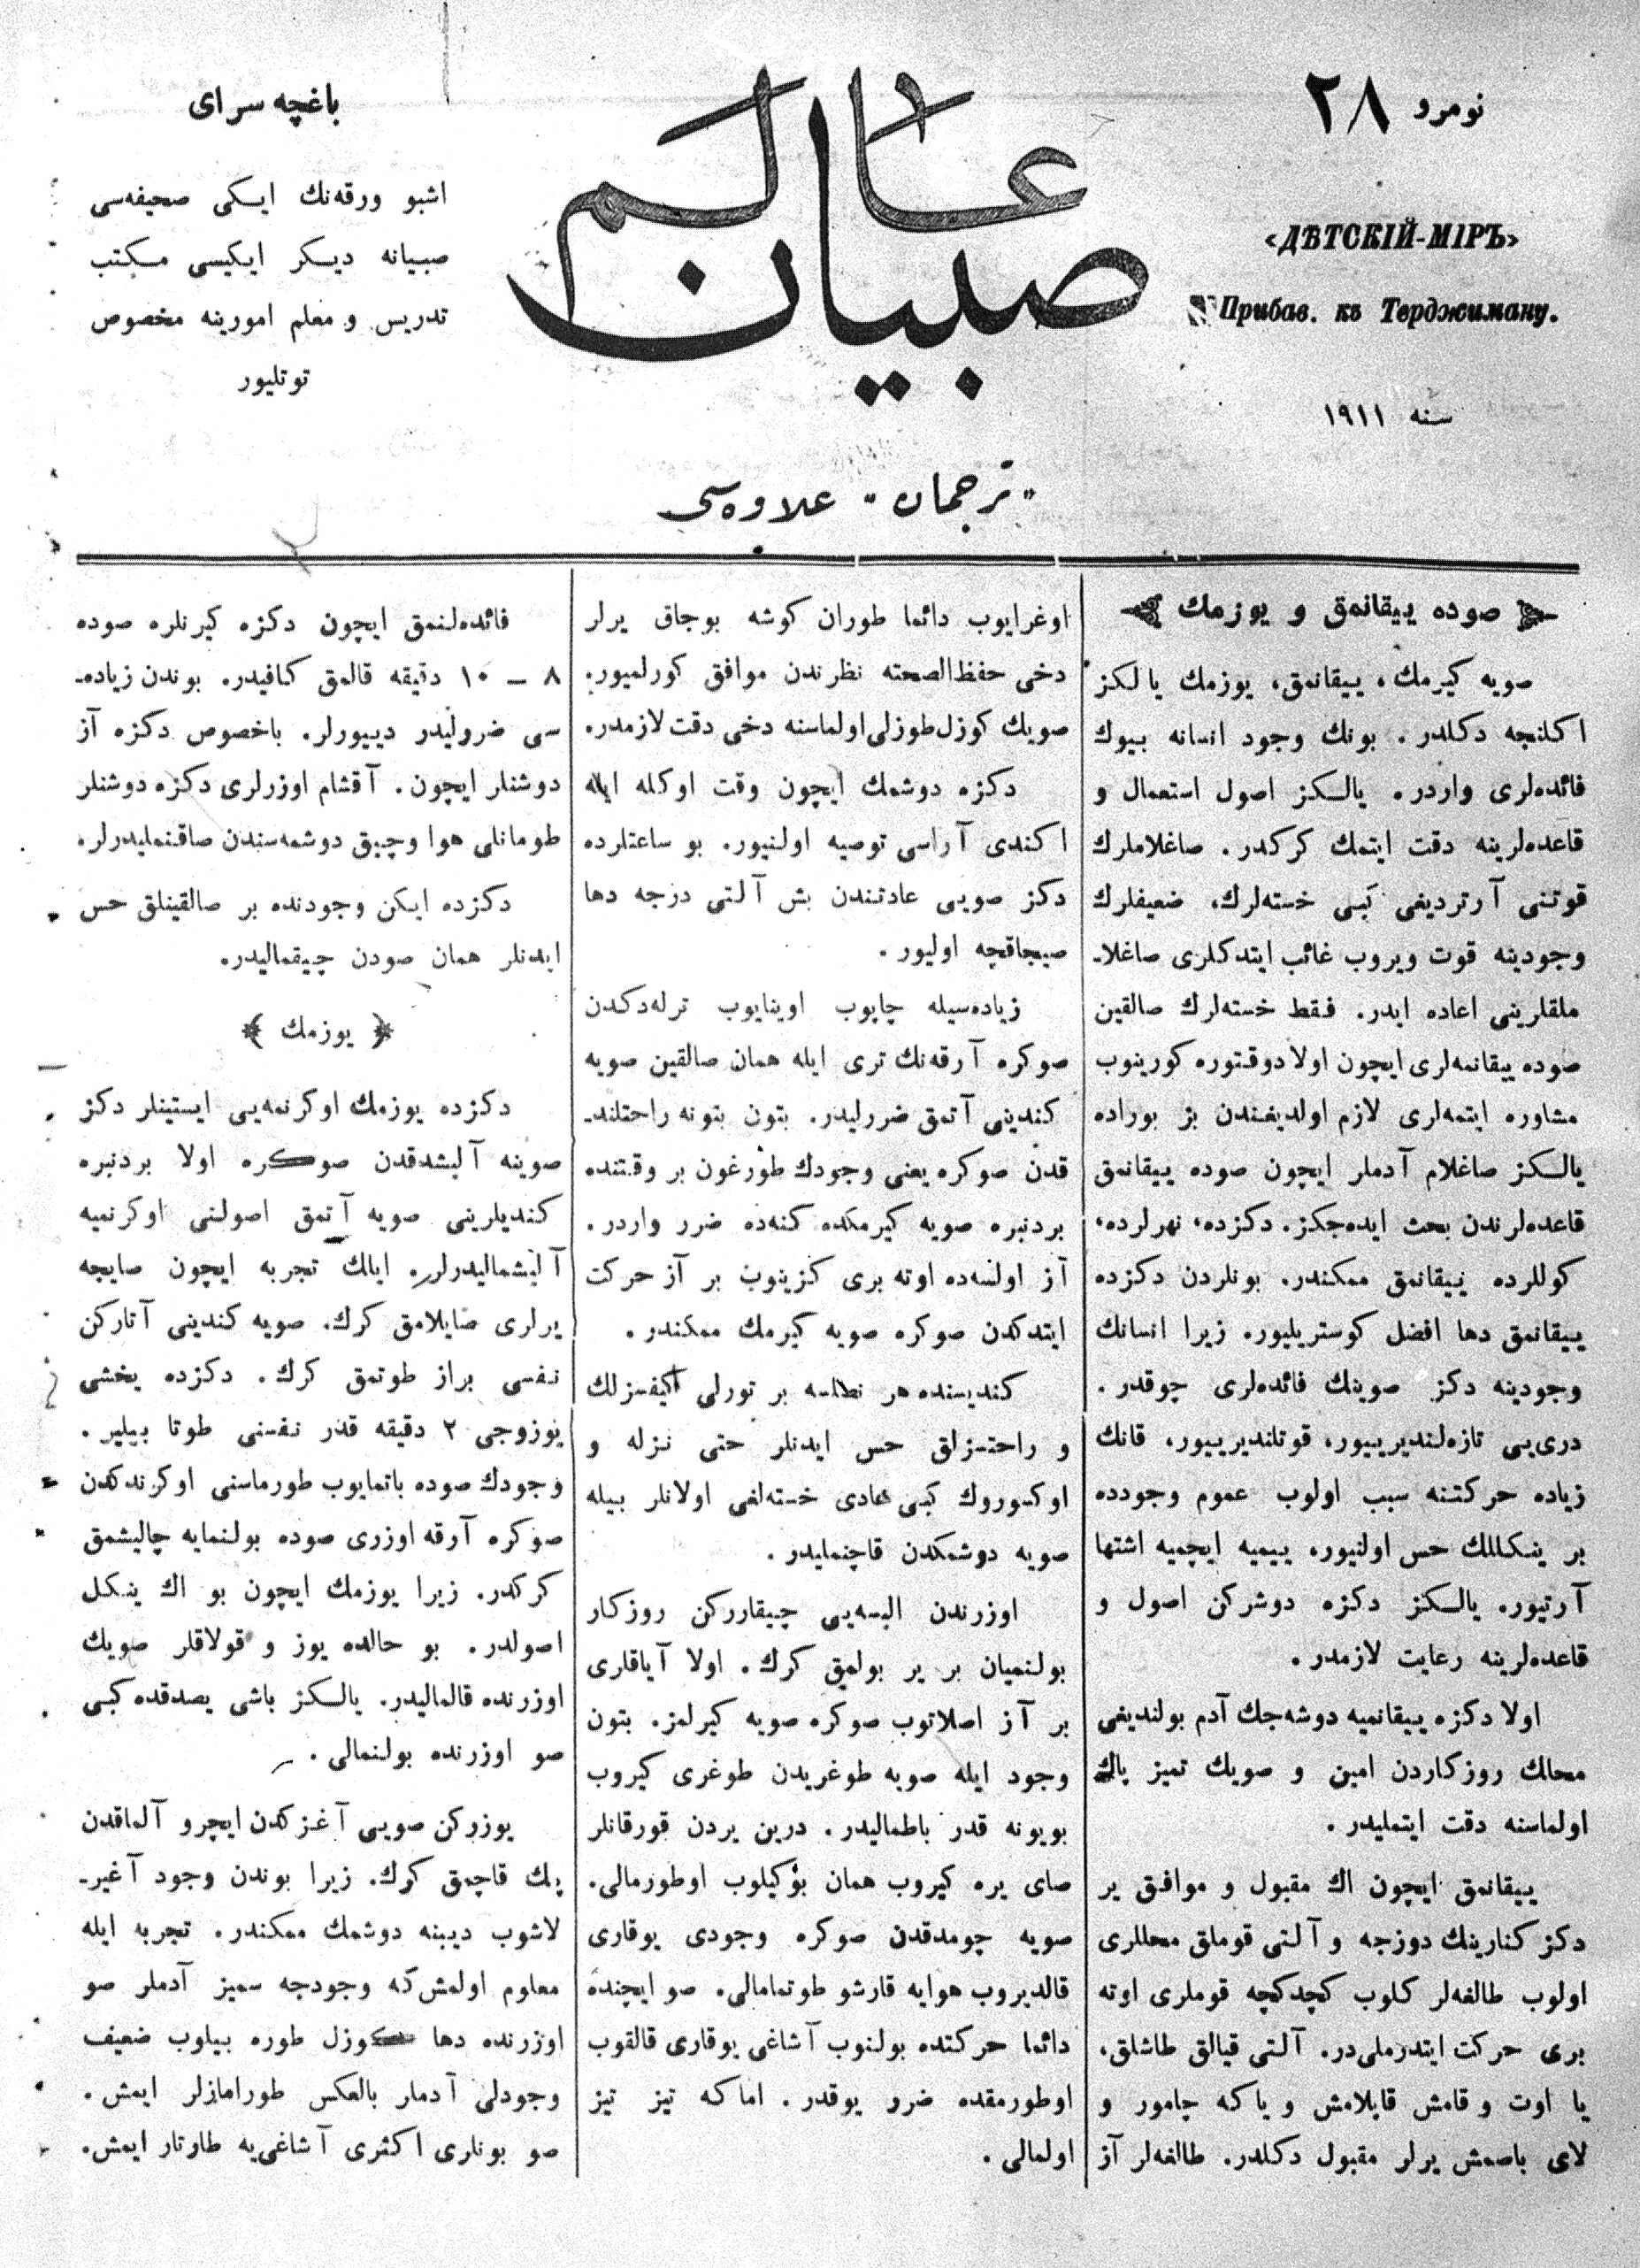 نومرو ٢٨
«ДѢТСКІЙ-МІРЪ»
Прибав. къ Терджиману.
سنه ١٩١١
عالم
صبيان
"ترجمان" علاوه‌سی
باغچه سرای
اشبو ورقه‌نك ایكی صحیفه‌سی
صبیانه دیكر ایكیسی مكتب
تدریس و معلم امورینه مخصوص
توتلیور
صوده ییقانمق و یوزمك
صویه كیرمك، ییقانمق، یوزمك یالكز
اكلنجه دكلدر. بونك وجود انسانه بیوك
فائده‌لری واردر. یالكز اصول استعمال و
قاعده‌لرینه دقت ایتمك كركدر. صاغلاملرك
قوتنی آرتردیغی كبی خسته‌لرك، ضعیفلرك
وجودینه قوت ویروب غائب ایتدكلری صاغلا-
ملقلرینی اعاده ایدر. فقط خسته‌لرك صالقین
صوده ییقانمه‌لری ایچون اولا دوقتوره كورینوب
مشاوره ایتمه‌لری لازم اولدیغندن بز بوراده
یالكز صاغلام آدملر ایچون صوده ییقانمق
قاعده‌لرندن بحث ایده‌جكز. دكزده، نهرلرده،
كوللرده ییقانمق ممكندر. بونلردن دكزده
ییقانمق دها افضل كوستریلیور. زیرا انسانك
وجودینه دكز صوینك فائده‌لری چوقدر.
دری‌یی تازه‌لندیرییور، قوتلندیرییور، قانك
زیاده حركتنه سبب اولوب عموم وجودده
بر ینكللك حس اولنیور، ییمیه ایچمیه اشتها
آرتیور. یالكز دكزه دوشركن اصول و
قاعده‌لرینه رعایت لازمدر.
اولا دكزه ییقانمیه دوشه‌جك آدم بولندیغی
محلك روزكاردن امین و صویك تمیز پاك
اولماسنه دقت ایتملیدر.
ییقانمق ایچون اك مقبول و موافق یر
دكز كنارینك دوزجه و آلتی قوملق محللری
اولوب طالغه‌لر كلوب كچدكچه قوملری اوته
بری حركت ایتدرملی‌در. آلتی قیالق طاشلق،
یا اوت و قامش قاپلامش و یا كه چامور و
لای باصمش یرلر مقبول دكلدر. طالغه‌لر آز
اوغرایوب دائما طوران كوشه بوجاق یرلر
دخی حفظ‌الصحته نظرندن موافق كورلمیور.
صویك كوزل طوزلی اولماسنه دخی دقت لازمدر.
دكزه دوشمك ایچون وقت اوكله ایله
اكندی آراسی توصیه اولنیور. بو ساعتلرده
دكز صویی عادتندن بش آلتی درجه دها
صیجاقچه اولیور.
زیاده‌سیله چاپوب اوینایوب ترله‌دكدن
صوكره آرقه‌نك تری ایله همان صالقین صویه
كندینی آتمق ضررلیدر. بتون بتونه راحتلند-
قدن صوكره یعنی وجودك طورغون بر وقتنده
بردنبره صویه كیرمكده كنه‌ده ضرر واردر.
آز اولسه‌ده اوته بری كزینوب بر آز حركت
ایتدكدن صوكره صویه كیرمك ممكندر.
كندیسنده هر نصلسه بر تورلی كیفسزلك
و راحتسزلق حس ایدنلر حتی نزله و
اوكسوروك كبی عادی خسته‌لغی اولانلر بیله
صویه دوشمكدن قاچنملیدر.
اوزرندن البسه‌یی چیقاررکن روزكار
بولنمیان بر یر بولمق كرك. اولا آیاقلری
بر آز اصلاتوب صوكره صویه كیرلمز. بتون
وجود ایله صویه طوغریدن طوغری كیروب
بویونه قدر باطمالیدر. درین یردن قورقانلر
صای یره كیروب همان بوكیلوب اوطورمالی.
صویه چومدقدن صوكره وجودی یوقاری
قالدیروب هوایه قارشو طوتمامالی. صو ایچنده
دائما حركتده بولنوب آشاغی یوقاری قالقوب
اوطورمقده ضرر یوقدر. اما كه تیز تیز
اولمالی.
فائده‌لنمق ایچون دكزه كیرنلره صوده
٨ - ١٠ دقیقه قالمق كافیدر. بوندن زیاده-
سی ضررلیدر دییورلر. باخصوص دكزه آز
دوشنلر ایچون. آقشام اوزرلری دكزه دوشنلر
طومانلی هوا و چیق دوشمه‌سندن صاقنملیدرلر.
دكزده ایكن وجودنده بر صالقینلق حس
ایدنلر همان صودن چیقمالیدر.
یوزمك
دكزده یوزمك اوكرنمه‌یی ایستینلر دكز
صوینه آلیشدقدن صوكره اولا بردنبره
كندیلرینی صویه آتمق اصولنی اوكرنمیه
آلیشمالیدرلر. ایلك تجربه ایچون صایجه
یرلری صایلامق كرك. صویه كندینی آتاركن
نفسی براز طوتمق كرك. دكزده یخشی
یوزوجی ٢ دقیقه قدر نفسنی طوتا بیلیر.
وجودك صوده باتمایوب طورماسنی اوكرندكدن
صوكره آرقه اوزری صوده بولنمایه چالیشمق
كركدر. زیرا یوزمك ایچون بو اك ینكل
اصولدر. بو حالده یوز و قولاقلر صویك
اوزرنده قالمالیدر. یالكز باشی یصدقده كبی
صو اوزرنده بولنمالی.
یوزركن صویی آغزكدن ایچرو آلماقدن
پك قاچمق كرك. زیرا بوندن وجود آغیر-
لاشوب دیبنه دوشمك ممكندر. تجربه ایله
معلوم اولمش كه وجودجه سمیز آدملر صو
اوزرنده دها كوزل طوره بیلوب ضعیف
وجودلی آدملر بالعكس طورامازلر ایمش.
صو بونلری اكثری آشاغی‌یه طارتار ایمش.